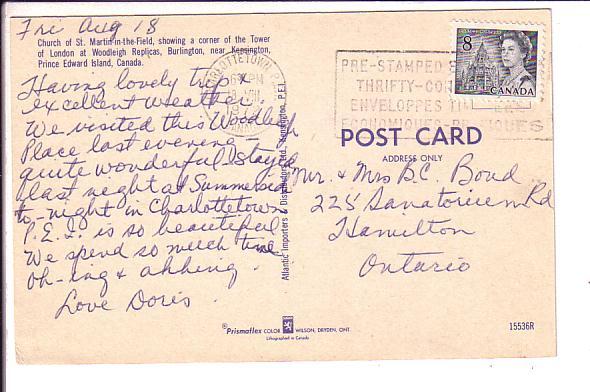 Fri Aug 18
Church of St. Martin-in-the-Field, showing a corner of the Tower
of London at Woodleigh Replicas, Burlington, near Kensington,
Prince Edward Island, Canada.
Having lovely trip &
excellent weather.
We visited this Woodleigh
Place last evening -
quite wonderful - Stayed
last night at Summerside
to-night in Charlottetown
P.E.I. is so beautiful
We spend so much time
oh-ing & ahhing.
Love Doris.
Atlantic Importers & Distributors Ltd., Kensington, P.E.I.
CHARLOTTETOWN P.E.I.
PM
18 VIII
8
CANADA
PRE-STAMPED
THRIFTY-
ENVELOPPES
ECONOMIQUES-
POST CARD
ADDRESS ONLY
Mr. & Mrs B.C. Bond
225 Sanatorium Rd
Hamilton
Ontario
Prismaflex COLOR WILSON, DRYDEN, ONT.
Lithographed in Canada
15536R